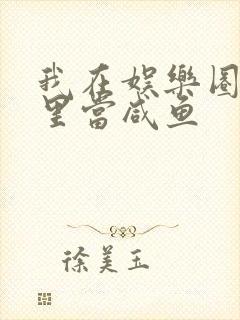 我在娱樂圈
里當咸鱼
徐美玉